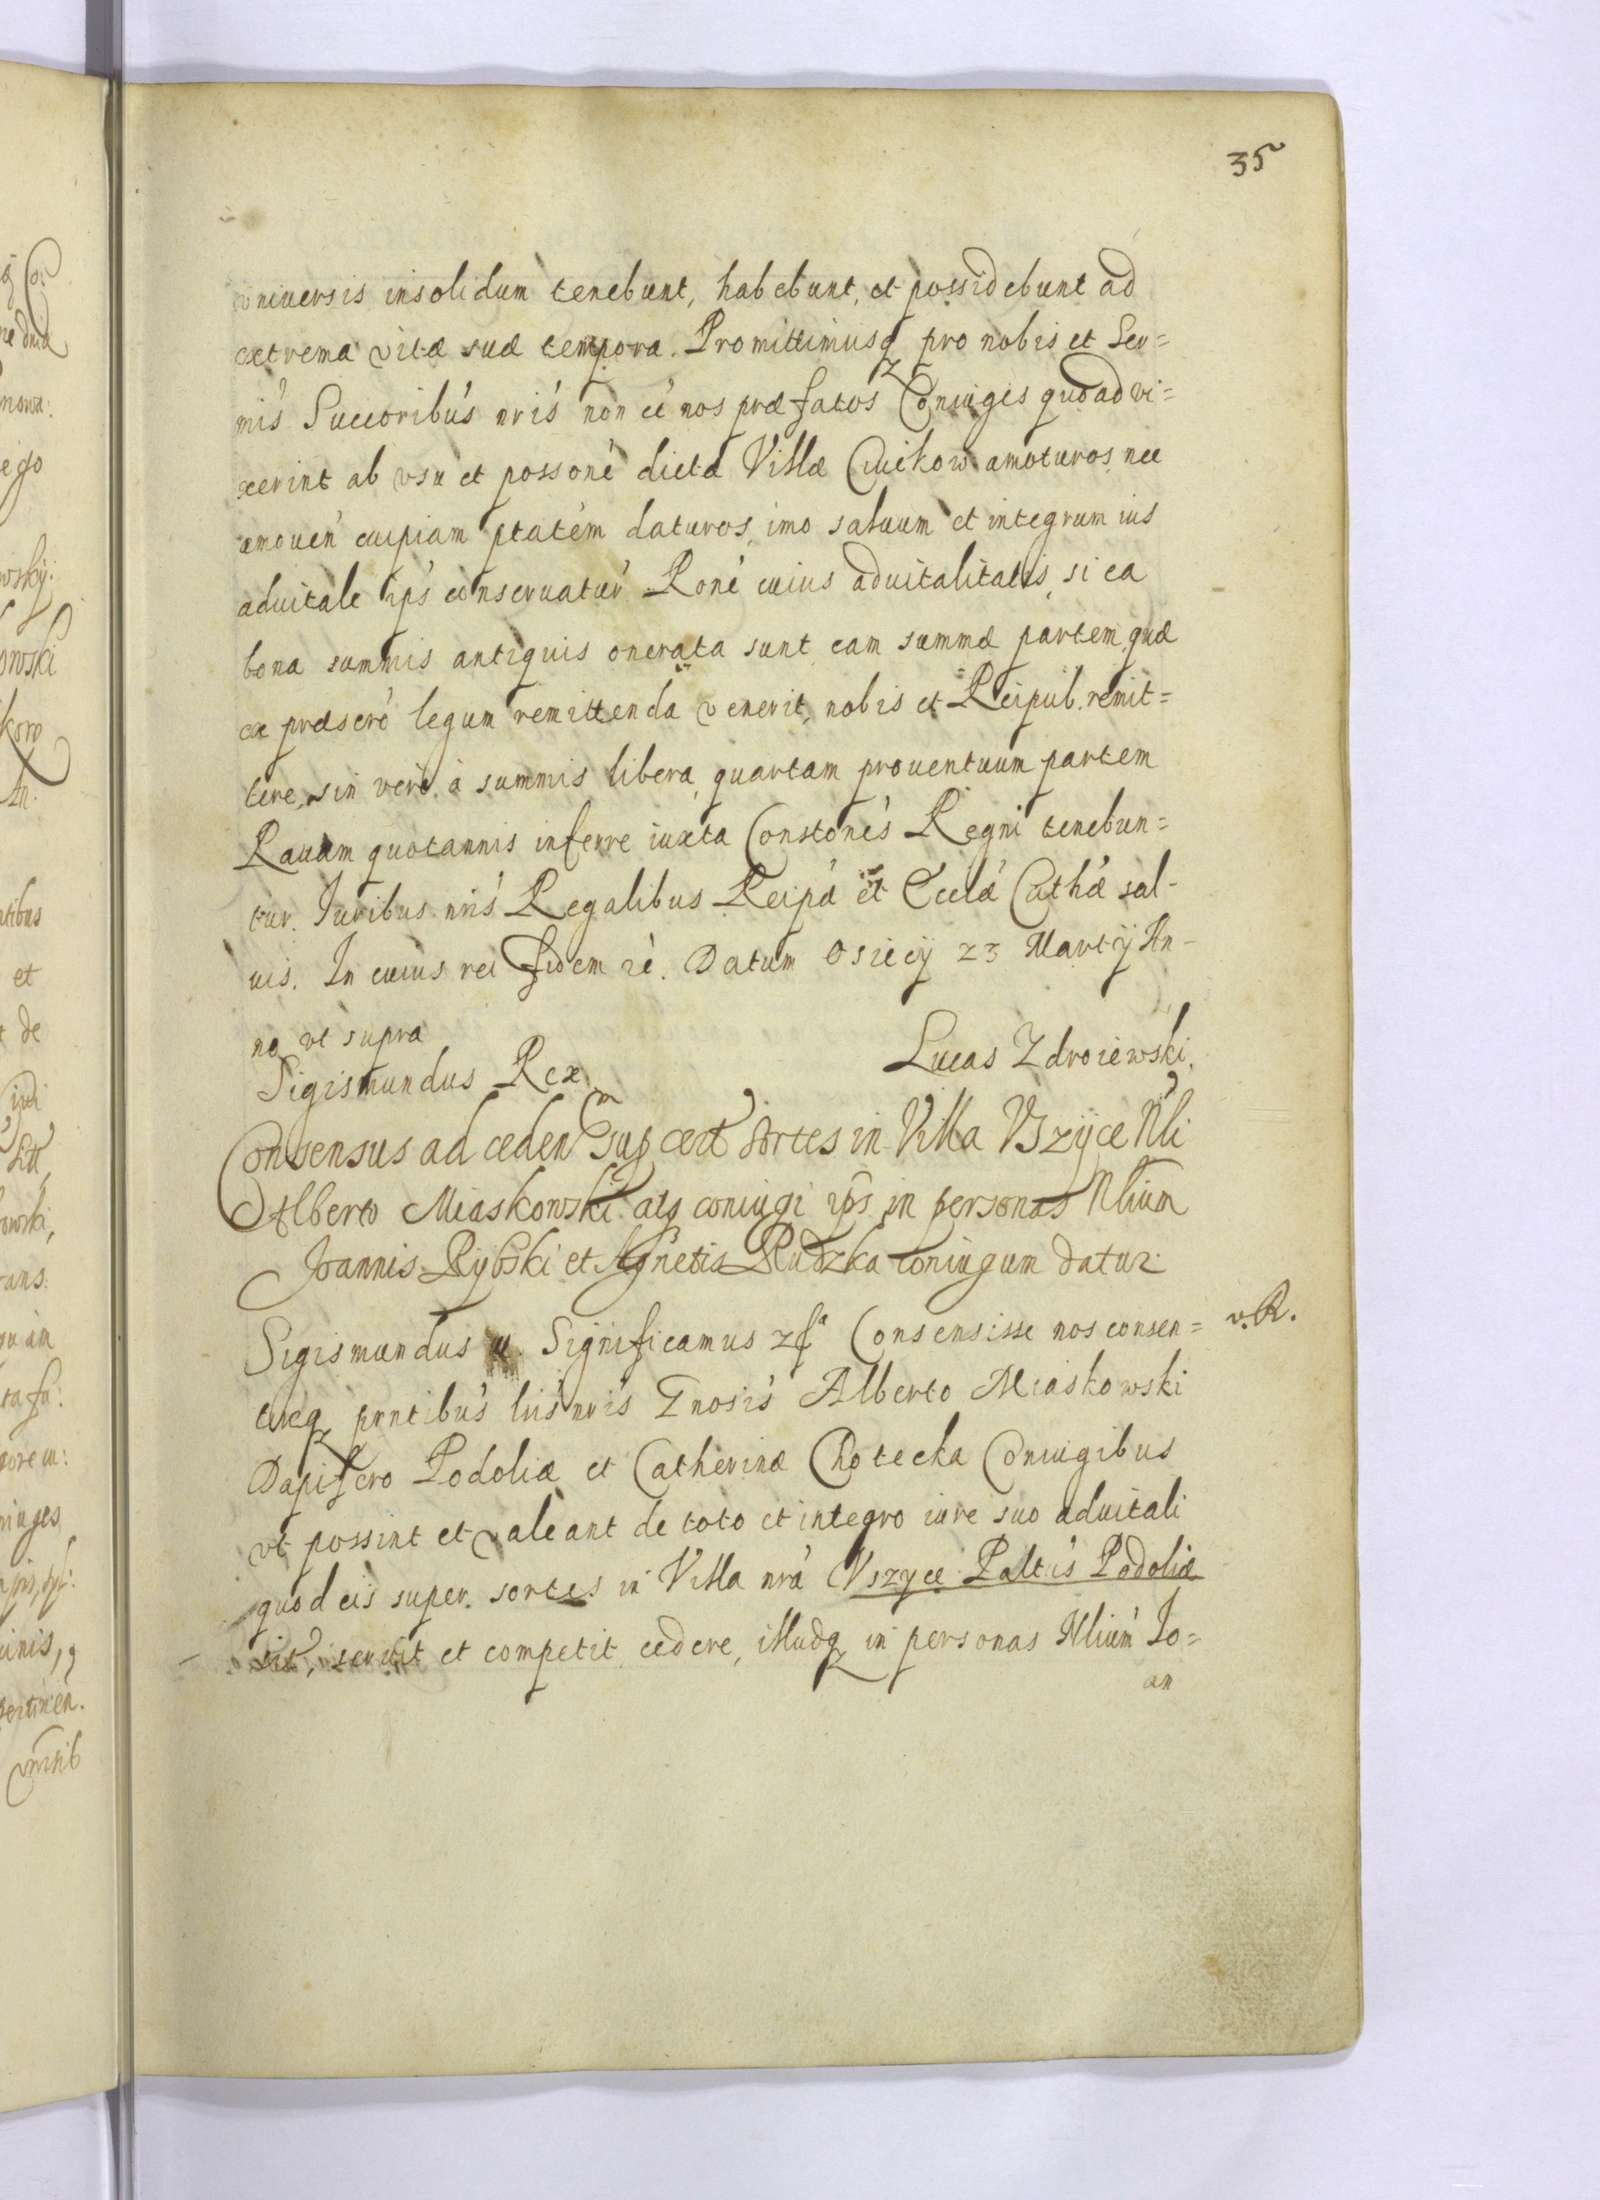 35
vniuersis insolidum tenebunt, habebunt, et possidebunt ad
extrema vitæ suæ tempora. Promittimusq pro nobis et Ser=
mis Succoribus nris non ee nos præfatos Coniuges quoad vi=
xerint ab vsu et possone dictæ Villæ Cwikow amoturos nec
amouen cuipiam ptatem daturos, imo saluum et integrum ius
aduitale ips conseruatur Rone cuius aduitalitatis, si ea
bona summis antiquis onerata sunt eam summæ partem, quæ
ex præscro legum remittenda venerit, nobis et Reipub. remit=
tere, sin vero à summis libera, quartam prouentuum partem
Rauam quotannis inferre iuxta Constones Regni tenebun=
tur. Iuribus nris Regalibus Reipæ et Ecclæ Cathæ sal-
uis. In cuius rei fidem re. Datum Osiecÿ 23 Martÿ An-
no vt supra
Sigismundus Rex
Lucas Zdroiewski.
Consensus ad ceden sup cert sortes in Villa Vszÿce Nli
Alberto Miaskowski atq coniugi ips in personas Nlium
Joannis Rybski et Agnetis Rudzka coniugum datur
Sigismundus Significamus Consensisse nos consen=
v. R.
tireq pntibus lris nris Gnosis Alberto Miaskowski
Dapifero Podoliæ et Catherinæ Chotecka Coniugibus
vt possint et valeant de toto et integro iure suo aduitali
quod eis super sortes in Villa nra Vszyce Paltis Podoliæ
sit, seruit et competit cedere, illudq in personas Nlium Io=
an